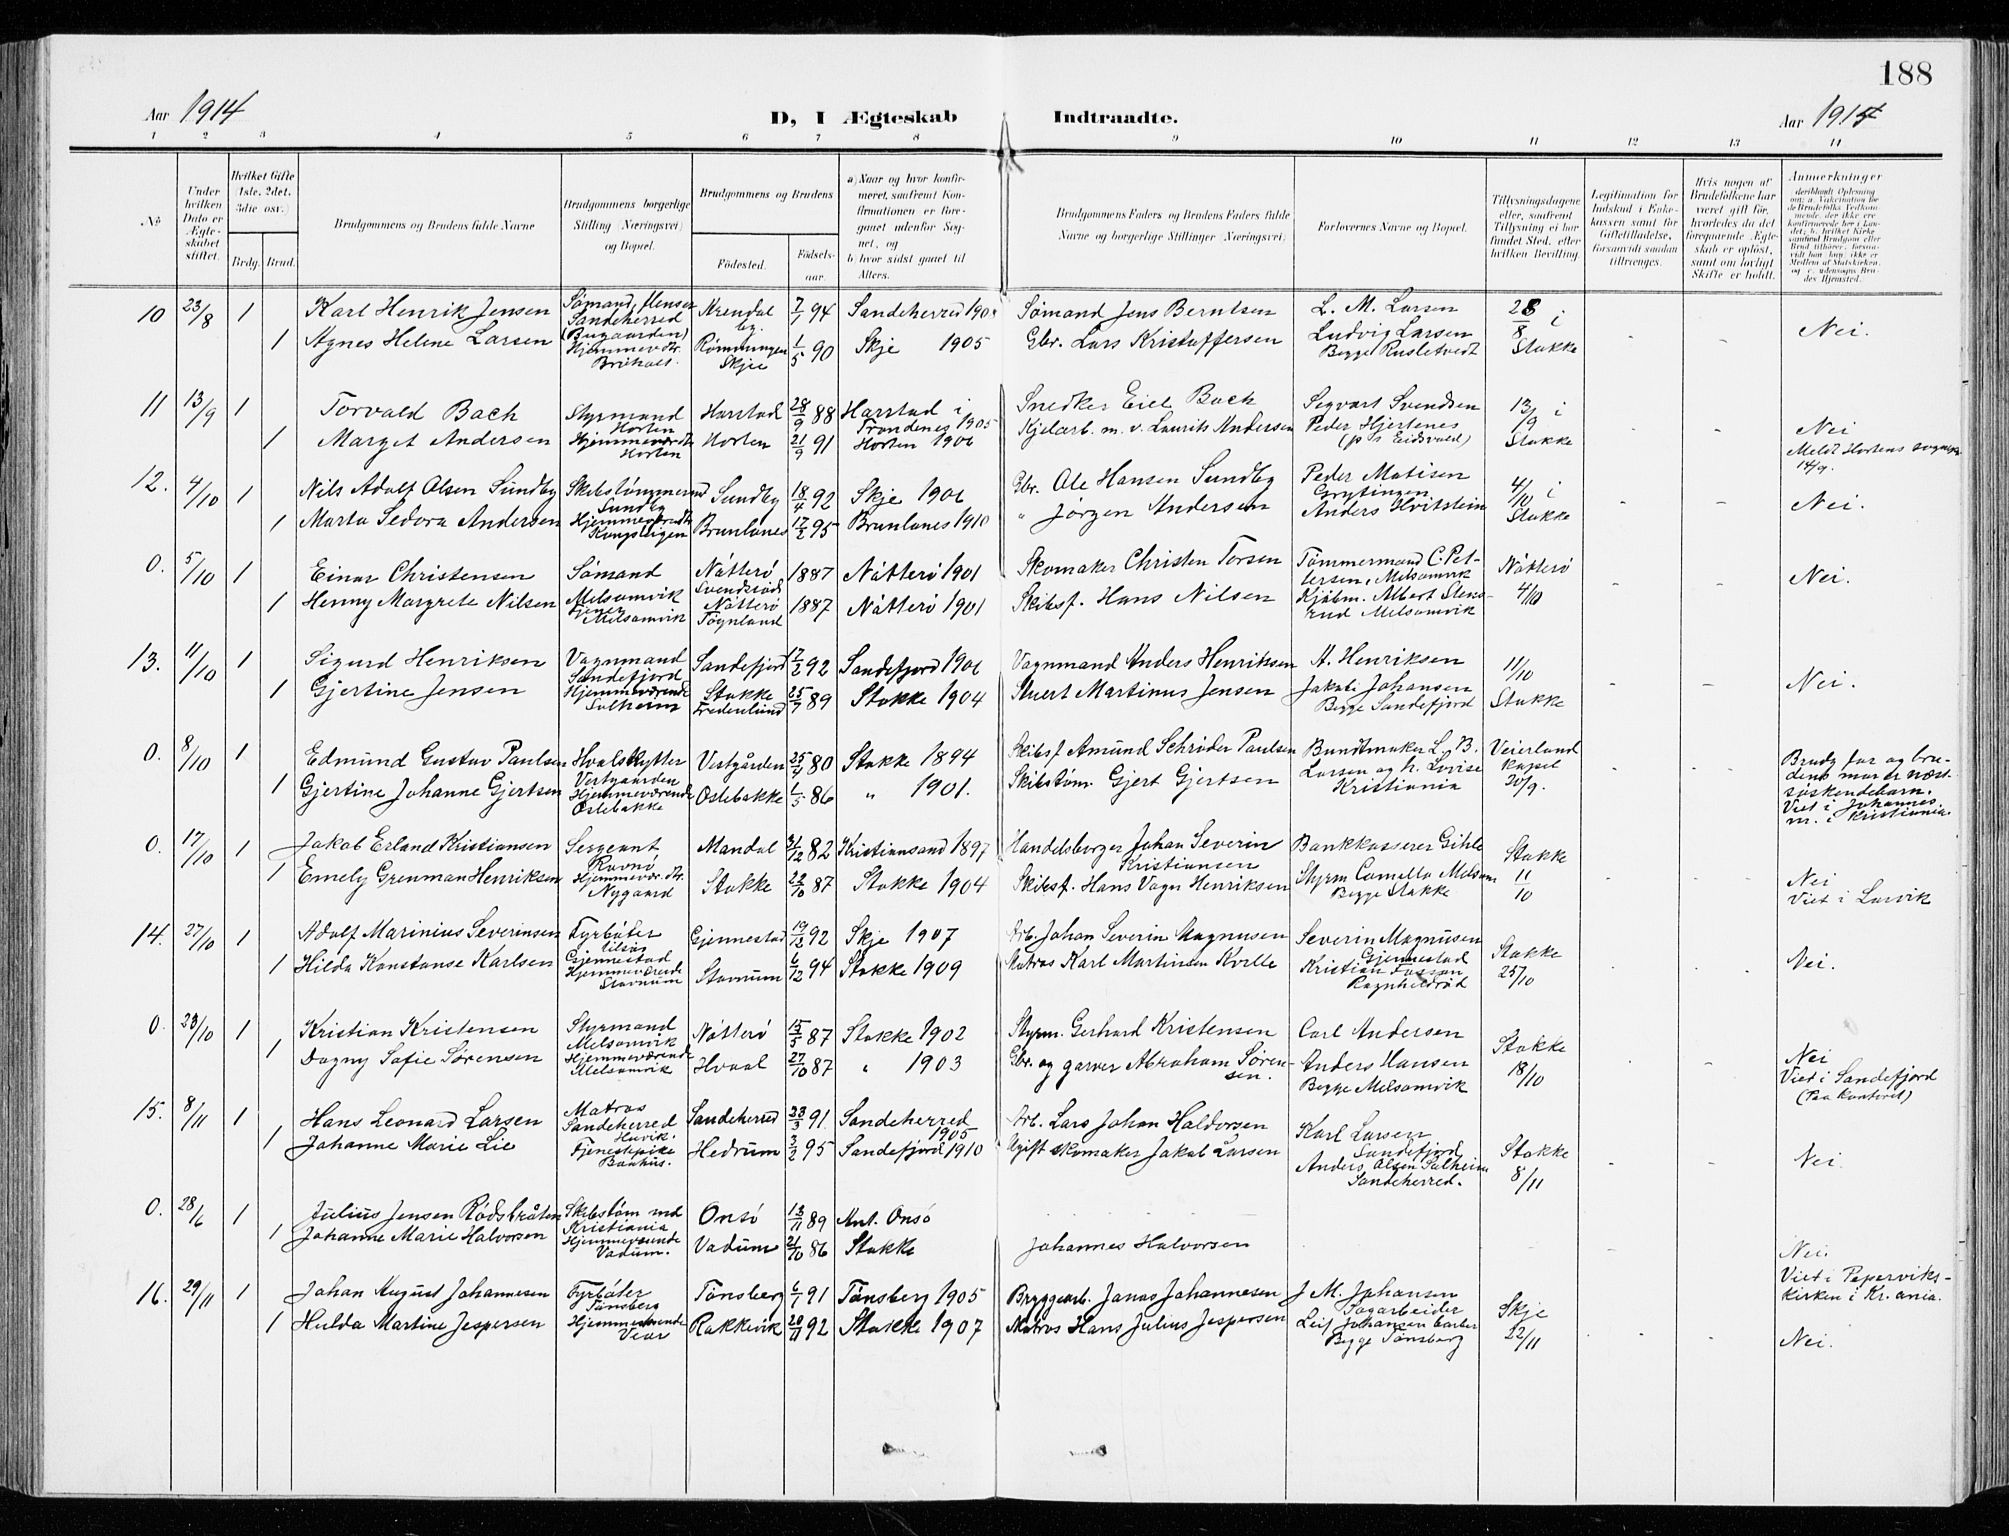 188
Aar 1914 D, I Ægteskab Indtraadte. Aar 1914
1 2 3 4 5 6 7 8 9 10 11 12 13 14
No
Under hvilken Dato er Ægteskabet stiftet.
Hvilket Gifte (1ste, 2det, 3die osv.)
Brdg. Brud.
Brudgommens og Brudens fulde Navne
Brudgommens borgerlige Stilling (Næringsvei) og Bopæl.
Brudgommens og Brudens
Fødested. Fødselsaar.
a) Naar og hvor konfirmeret, saafremt Konfirmationen er foregaaet udenfor Sognet, og
b) hvor sidst gaaet til Alters.
Brudgommens Faders og Brudens Faders fulde Navne og borgerlige Stillinger (Næringsvei)
Forlovernes Navne og Bopæl.
Tillysningsdagene eller, saafremt Tillysning ei har fundet Sted, efter hvilken Bevilling.
Legitimation for Indskud i Enkekassen samt for Giftetilladelse, forsaavidt saadan tiltrænges.
Hvis nogen af Brudefolkene har været gift før, hvorledes da det foregaaende Ægteskab er opløst, samt om lovligt Skifte er holdt.
Anmerkninger
10 23/8 1 Karl Henrik Jensen Sømand, Sandeherred (Bugaarden) Arendal by. 7/1 94 Sandeherred Sømand Jens Berntsen L. M. Larsen 23/8 i
1 Agnes Helene Larsen Hjemmevdr. Rømmingen Skjee 1/5 90 Skje 1905 Gbr. Lars Kristoffersen Ludvig Larsen Begge Stokke - - Nei.
11 13/9 1 Torvald Bach Styrmand Horten Harstad 28/9 88 Harstad i Trondenes 1905 Snedker Bach Segvart Svendsen 13/9 i
1 Marget Andersen Hjemmeværdr. Horten Horten 21/9 91 Horten 1906 Kjelarb. m. v. Laurits Andersen Peder Hjertenes (p s Eidsvold) Stokke - - Nei
Meldt Hortens sognepr. 14/9.
12. 4/10 1 Nils Adolf Olsen Sundby Skibstømmermd Sundby Sundby 18/4 92 Skje 1906 Gbr. Ole Hansen Sundby Peder Matisen 4/10 i
1 Marta Sedora Andersen Hjemmeværendr. Brunlanes 17/2 95 Brunlanes 1910 " Jørgen Andersen Anders Hvitstein Stokke - - Nei.
0. 5/10 1 Einar Christensen Sømand Melsomvik Nøtterø 1887 Nøtterø 1901 Skomaker Christen Torsen Tømmermand C. Pettersen, Melsomvik Nøtterø
1 Henny Margrete Nilsen Tjener Melsomvik Nøtterø 1887 Nøtterø 1901 Skibsf. Hans Nilsen Kjøbm. Albert Stensrud Melsomvik 4/10 - - Nei.
13. 11/10 1 Sigurd Henriksen Vognmand Sandefjord Sandefjord 17/2 92 Sandefjord 1906 Vognmand Anders Henriksen A. Henriksen 11/10
1 Gjertine Jensen Hjemmeværende Solheim Stokke Fredenlund 25/7 89 Stokke 1904 Stuert Martinus Jensen Jakob Johansen Begge Sandefjord Stokke - - Nei.
0. 8/10 1 Edmund Gustav Paulsen Hvalskytter Vestgaarden Vestgården 25/4 80 Stokke 1894 Skibsf. Amund Schrøder Paulsen Bundtmaker L. B. Veierland kapel
1 Gjertine Johanne Gjertsen Hjemmeværende Oslebakke Oslebakke 1/5 86 " 1901. Skibstøm. Gjert Gjertsen Larsen og h. Lovise Kristiania 20/9. - -
Brudg. far og brudens mor er næstsøskendebarn. Viet i Johannes m. i Kristiania.
0. 17/10 1 Jakob Erland Kristiansen Sergeant Mandal 31/12 82 Kristiansand 1897 Handelsborger Johan Severin Kristiansen Bankkasserer Gihle Stokke
1 Emely Grenman Henriksen Hjemmevær.dr. Nygaard Stokke 22/10 87 Stokke 1904 Skibsf. Hans Vagn Henriksen Styrm Camillo Melsom Begge Stokke 11/10 - - Nei
Viet i Larvik
14. 27/10 1 Adolf Marinius Severinsen Fyrbøter Gjennestad Gjennestad 19/12 92 Skje 1907 Arb. Johan Severin Magnusen Severin Magnusen Gjennestad Stokke
1 Hilda Konstanse Karlsen Hjemmeværende Stavnum Stavnum 6/12 94 Stokke 1909 Matros Karl Martinsen Kville Kristian 25/10 - - Nei.
0. 23/10 1 Kristian Kristensen Styrmand Melsomvik Nøtterø 15/5 87 Stokke 1902 Styrm. Gerhard Kristensen Carl Andersen Stokke
1 Dagny Sofie Sørensen Hjemmeværende Melsomvik Hvaal 27/10 87 " 1903 Gbr. og garver Abraham Sørensen. Anders Hansen Begge Melsomvik 18/10 - - Nei
Viet i Sandefjord (Paa kontoret)
15. 8/11 1 Hans Leonard Larsen Matros Sandeherred Sandeherred 23/3 91 Sandeherred 1905 Arb. Lars Johan Haldorsen Karl Larsen Sandefjord Stokke
1 Johanne Marie Lie Tjenestpike Hedrum 3/2 95 Sandefjord 1910 Ugift skomaker Jakob Larsen Anders Olsen Solheim Sandeherred. 8/11 - - Nei.
0. 28/6 1 Julius Jensen Rødsbråten Skibstøm md Kristiania Onsø 13/11 89 Ant. Onsø
1 Johanne Marie Halvorsen Hjemmeværende Vadum. Vadum 21/10 86 Stokke Johannes Halvorsen - - Nei.
Viet i Pepervikskirken i Kr.ania.
16. 29/11 1 Johan August Johannesen Fyrbøter Tønsberg Tønsberg 6/1 91 Tønsberg 1905 Bryggearb. Jonas Johannesen J M. Johansen Sagarbeider Skje
1 Hulda Martine Jespersen Hjemmeværende Vear Rakkevik 20/11 92 Stokke 1907 Matros Hans Julius Jespersen Leif Johansen barber Begge Tønsberg 22/11 - - Nei.